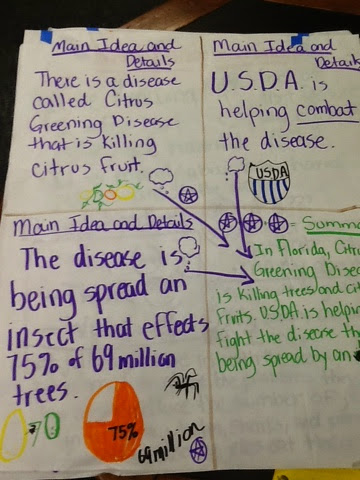 Main Idea and
Details
There is a disease
called Citrus
Greening Disease
that is killing
citrus fruit.
Main Idea and
Details
U.S.D.A. is
helping combat
the disease.
USDA
Main Idea and Details
The disease is
being spread an
insect that effects
75% of 69 million
trees.
75%
69 million
= Summa
In Florida, Citru
Greening Disea
is killing trees and cit
fruits. U.S.D.A. is helpin
fight the disease th
being spread by an